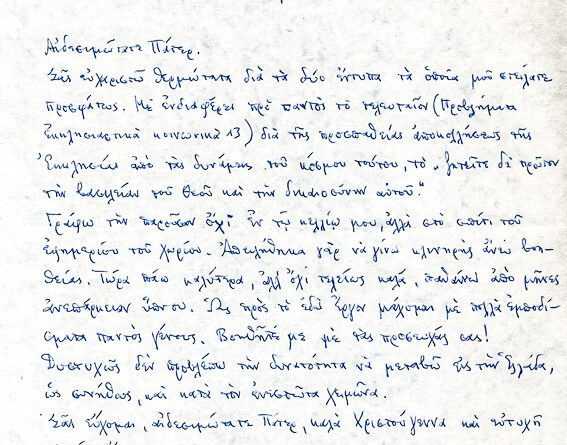 Αἰδεσιμώτατε Πάτερ.
Σᾶς εὐχαριστῶ θερμότατα διὰ τὰ δύο ἔντυπα τὰ ὁποῖα μοῦ στείλατε
προσφάτως. Μὲ ἐνδιαφέρει πρὸ παντὸς τὸ τελευταῖον (Προβλήματα
ἐκκλησιαστικὰ κοινωνικὰ 13) διὰ τῆς προσπαθείας ἀποκολλήσεως τῆς
Ἐκκλησίας ἀπὸ τὰς δυνάμεις τοῦ κόσμου τούτου, τὸ „ζητεῖτε δὲ πρῶτον
τὴν βασιλείαν τοῦ Θεοῦ καὶ τὴν δικαιοσύνην αὐτοῦ.“
Γράφω τὴν παροῦσαν ὄχι ἐν τῷ κελλίῳ μου, ἀλλὰ στὸ σπίτι τοῦ
ἐφημερίου τοῦ χωρίου. Ἀπειλήθηκα γὰρ νὰ γίνω κλινήρης ἄνευ βοη-
θείας. Τώρα πάω καλύτερα, ἀλλ' ὄχι τελείως καλά, ἀπὸ μῆνες
ἀνεπάρκειαν ὕπνου. Ὡς πρὸς τὸ ἐδῶ ἔργον μάχομαι μὲ πολλὰ ἐμποδί-
σματα παντὸς γένους. Βοηθῆτέ με μὲ τὰς προσευχάς σας!
Δυστυχῶς δὲν προβλέπω τὴν δυνατότητα νὰ μεταβῶ εἰς τὴν Ἑλλάδα,
ὡς συνήθως, καὶ κατὰ τὸν ἐνεστῶτα χειμῶνα.
Σᾶς εὔχομαι, αἰδεσιμώτατε Πάτερ, καλὰ Χριστούγεννα καὶ εὐτυχῆ